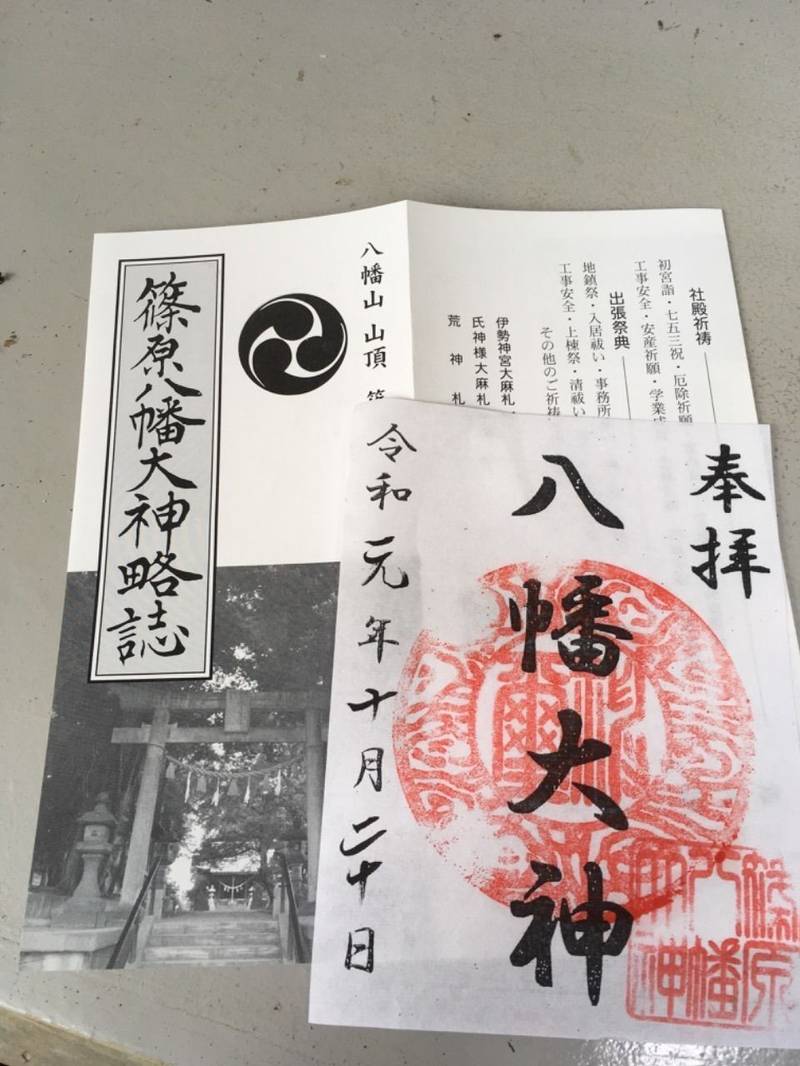 社殿祈祷
初宮詣・七五三祝・厄除祈願
工事安全・安産祈願・学業成
出張祭典
地鎮祭・入居祓い・事務所
工事安全・上棟祭・清祓い
その他のご祈祷
伊勢神宮大麻札・
氏神様大麻札
荒神札
八幡山 山頂
篠原八幡大神略誌
奉拝
八幡大神
令和元年十月二十日
篠原
八幡
大神